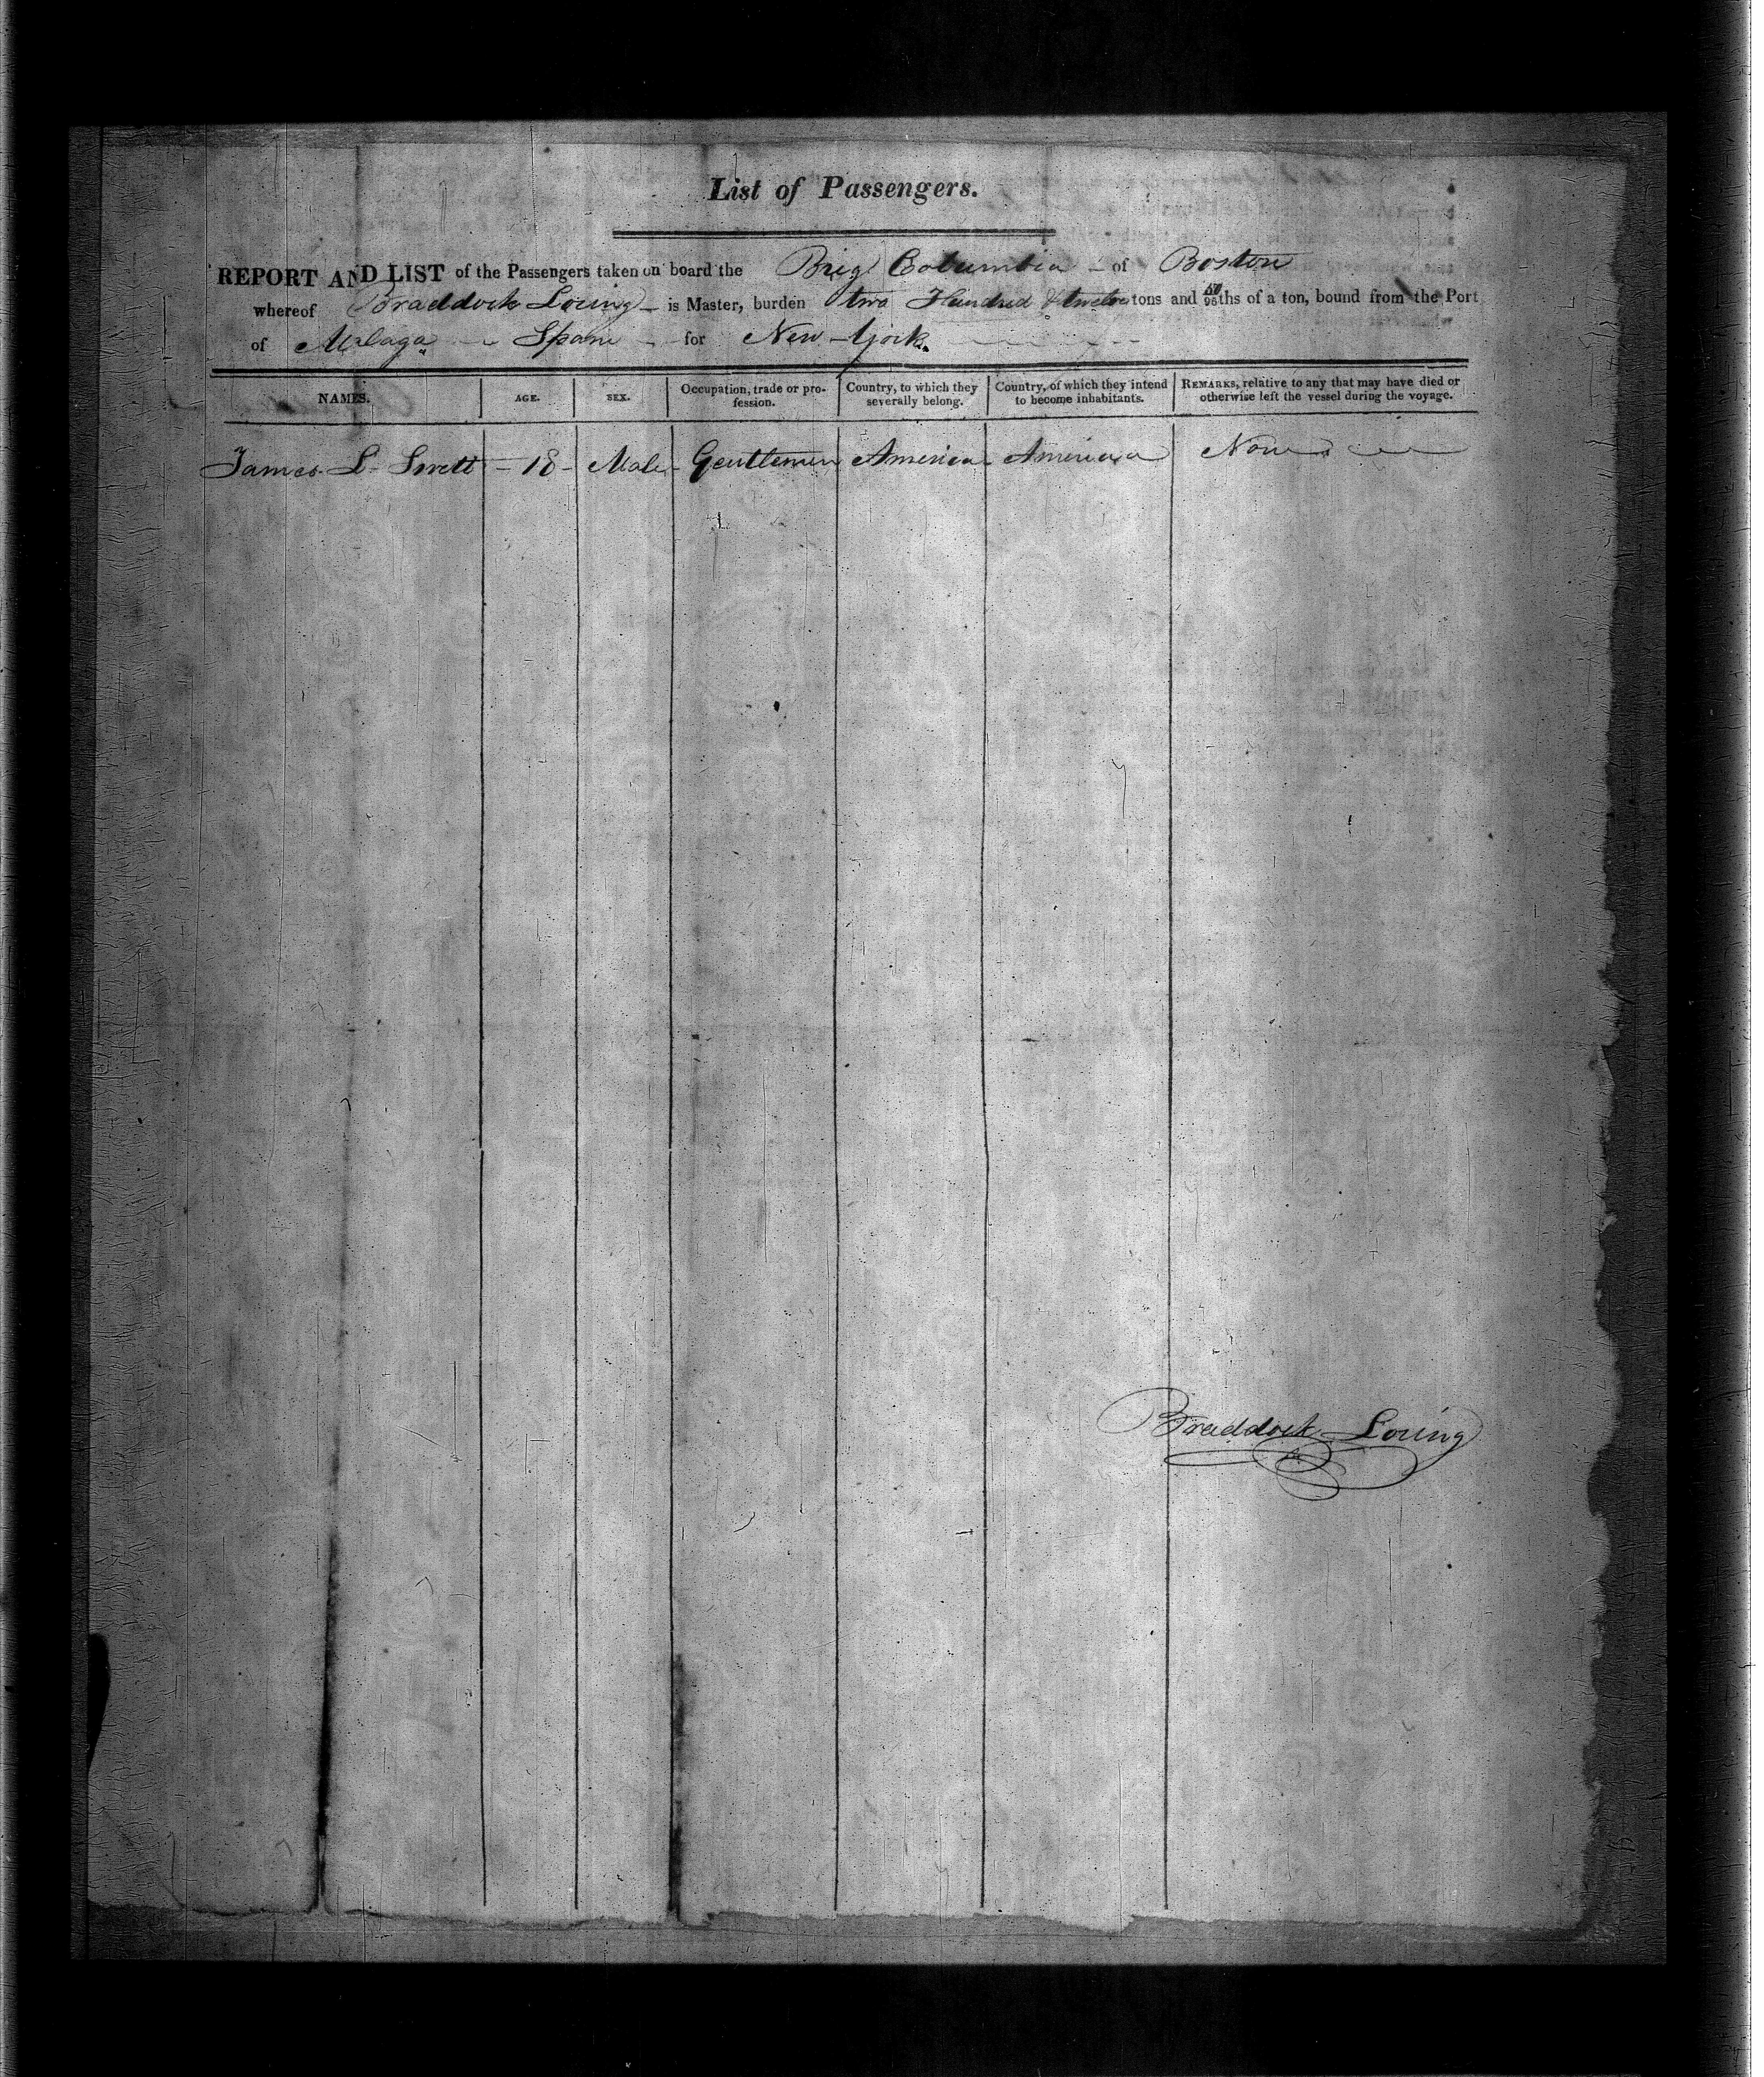 List of Passengers.
REPORT AND LIST of the Passengers taken on board the Brig Columbia of Boston
whereof Braddock Loring is Master, burden two Hundred & twelve tons and 57/95ths of a ton, bound from the Port
of Malaga Spain for New-York.
NAMES. AGE. SEX. Occupation, trade or profession. Country, to which they severally belong. Country, of which they intend to become inhabitants. REMARKS, relative to any that may have died or otherwise left the vessel during the voyage.
James L. Swett - 18 - Male Gentlemen America America None
Braddock Loring